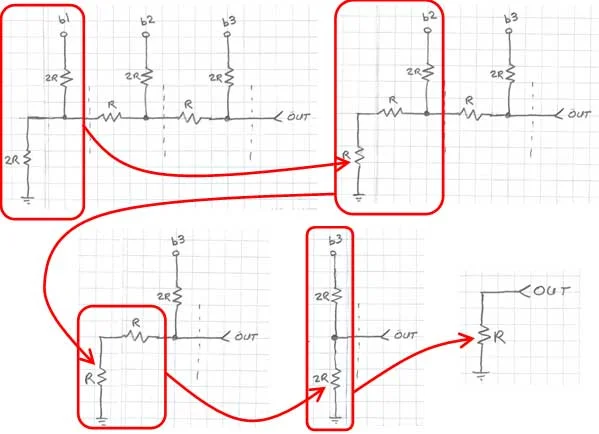 b1 b2 b3
2R 2R 2R
R R
OUT
2R
b2 b3
2R 2R
R R
OUT
R
b3
2R
R
OUT
R
b3
2R
OUT
2R
OUT
R